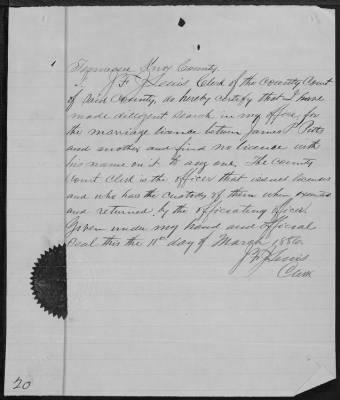 Tennessee Knox County.
J F J Lewis Clerk of the County Court
of said County, do hereby certify that I have
made diligent search in my office for
the marriage licence between James P
and another and find no licence with
his name on it to any one. The County
Court Clerk is the officer that issues licenses
and who has the custody of them when
and returned by the officiating officer
Given under my hand and official
Seal this the 11th day of March 1886.
J F J Lewis
Clerk
20